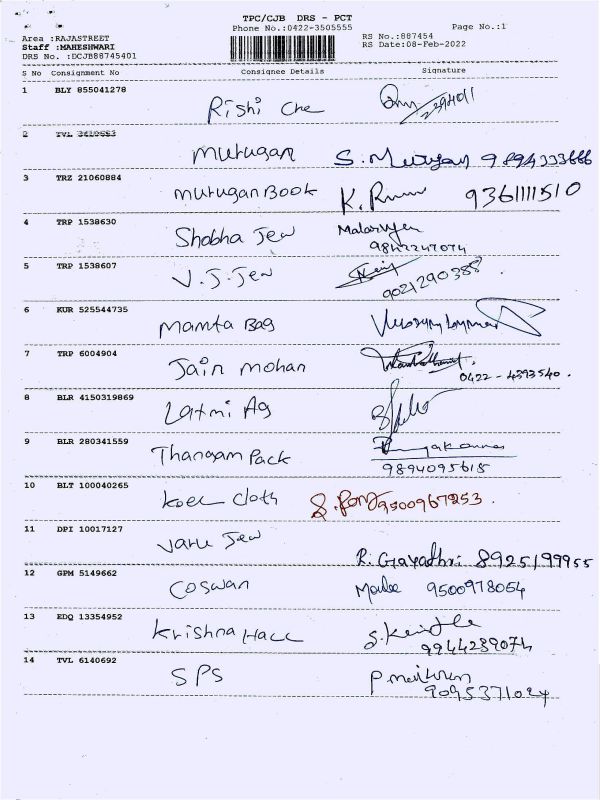 TPC/CJB DRS - PCT
Phone No.:0422-3505555
Page No.:1
Area :RAJASTREET
Staff :MAHESHWARI
DRS No. :DCJB88745401
RS No.:887454
RS Date:08-Feb-2022
S No Consignment No Consignee Details Signature
1 BLY 855041278
Rishi Che
2 TVL
Murugan S. Murugan 9894333666
3 TRZ 21060884
Murugan Book K. 9361111510
4 TRP 1538630
Shobha Jew
9842247074
5 TRP 1538607
V.J.Jew
9021290388
6 KUR 525544735
Mamta Bag
7 TRP 6004904
Jain Mohan
0422-4393540.
8 BLR 4150319869
Laxmi Ag
9 BLR 280341559
Thangam Pack
9894095618
10 BLT 100040265
Koel Cloth 9500967253.
11 DPI 10017127
Varu Jew
R. Gayathri 8925199955
12 GPM 5149662
Coswan 9500978054
13 EDQ 13354952
Krishna Hall
9944289074
14 TVL 6140692
SPS
9095371024